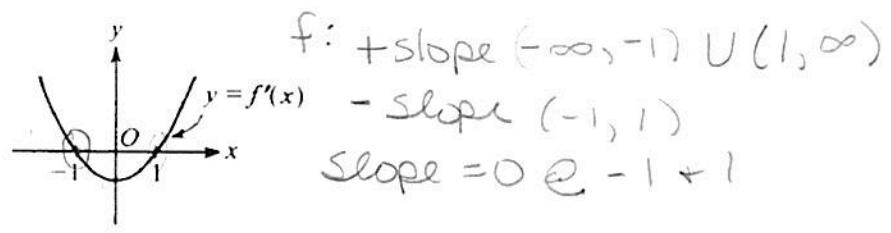 y
y = f'(x)
O
x
-1
1
f: +slope (-∞, -1) ∪ (1, ∞)
- slope (-1, 1)
slope = 0 @ -1 + 1